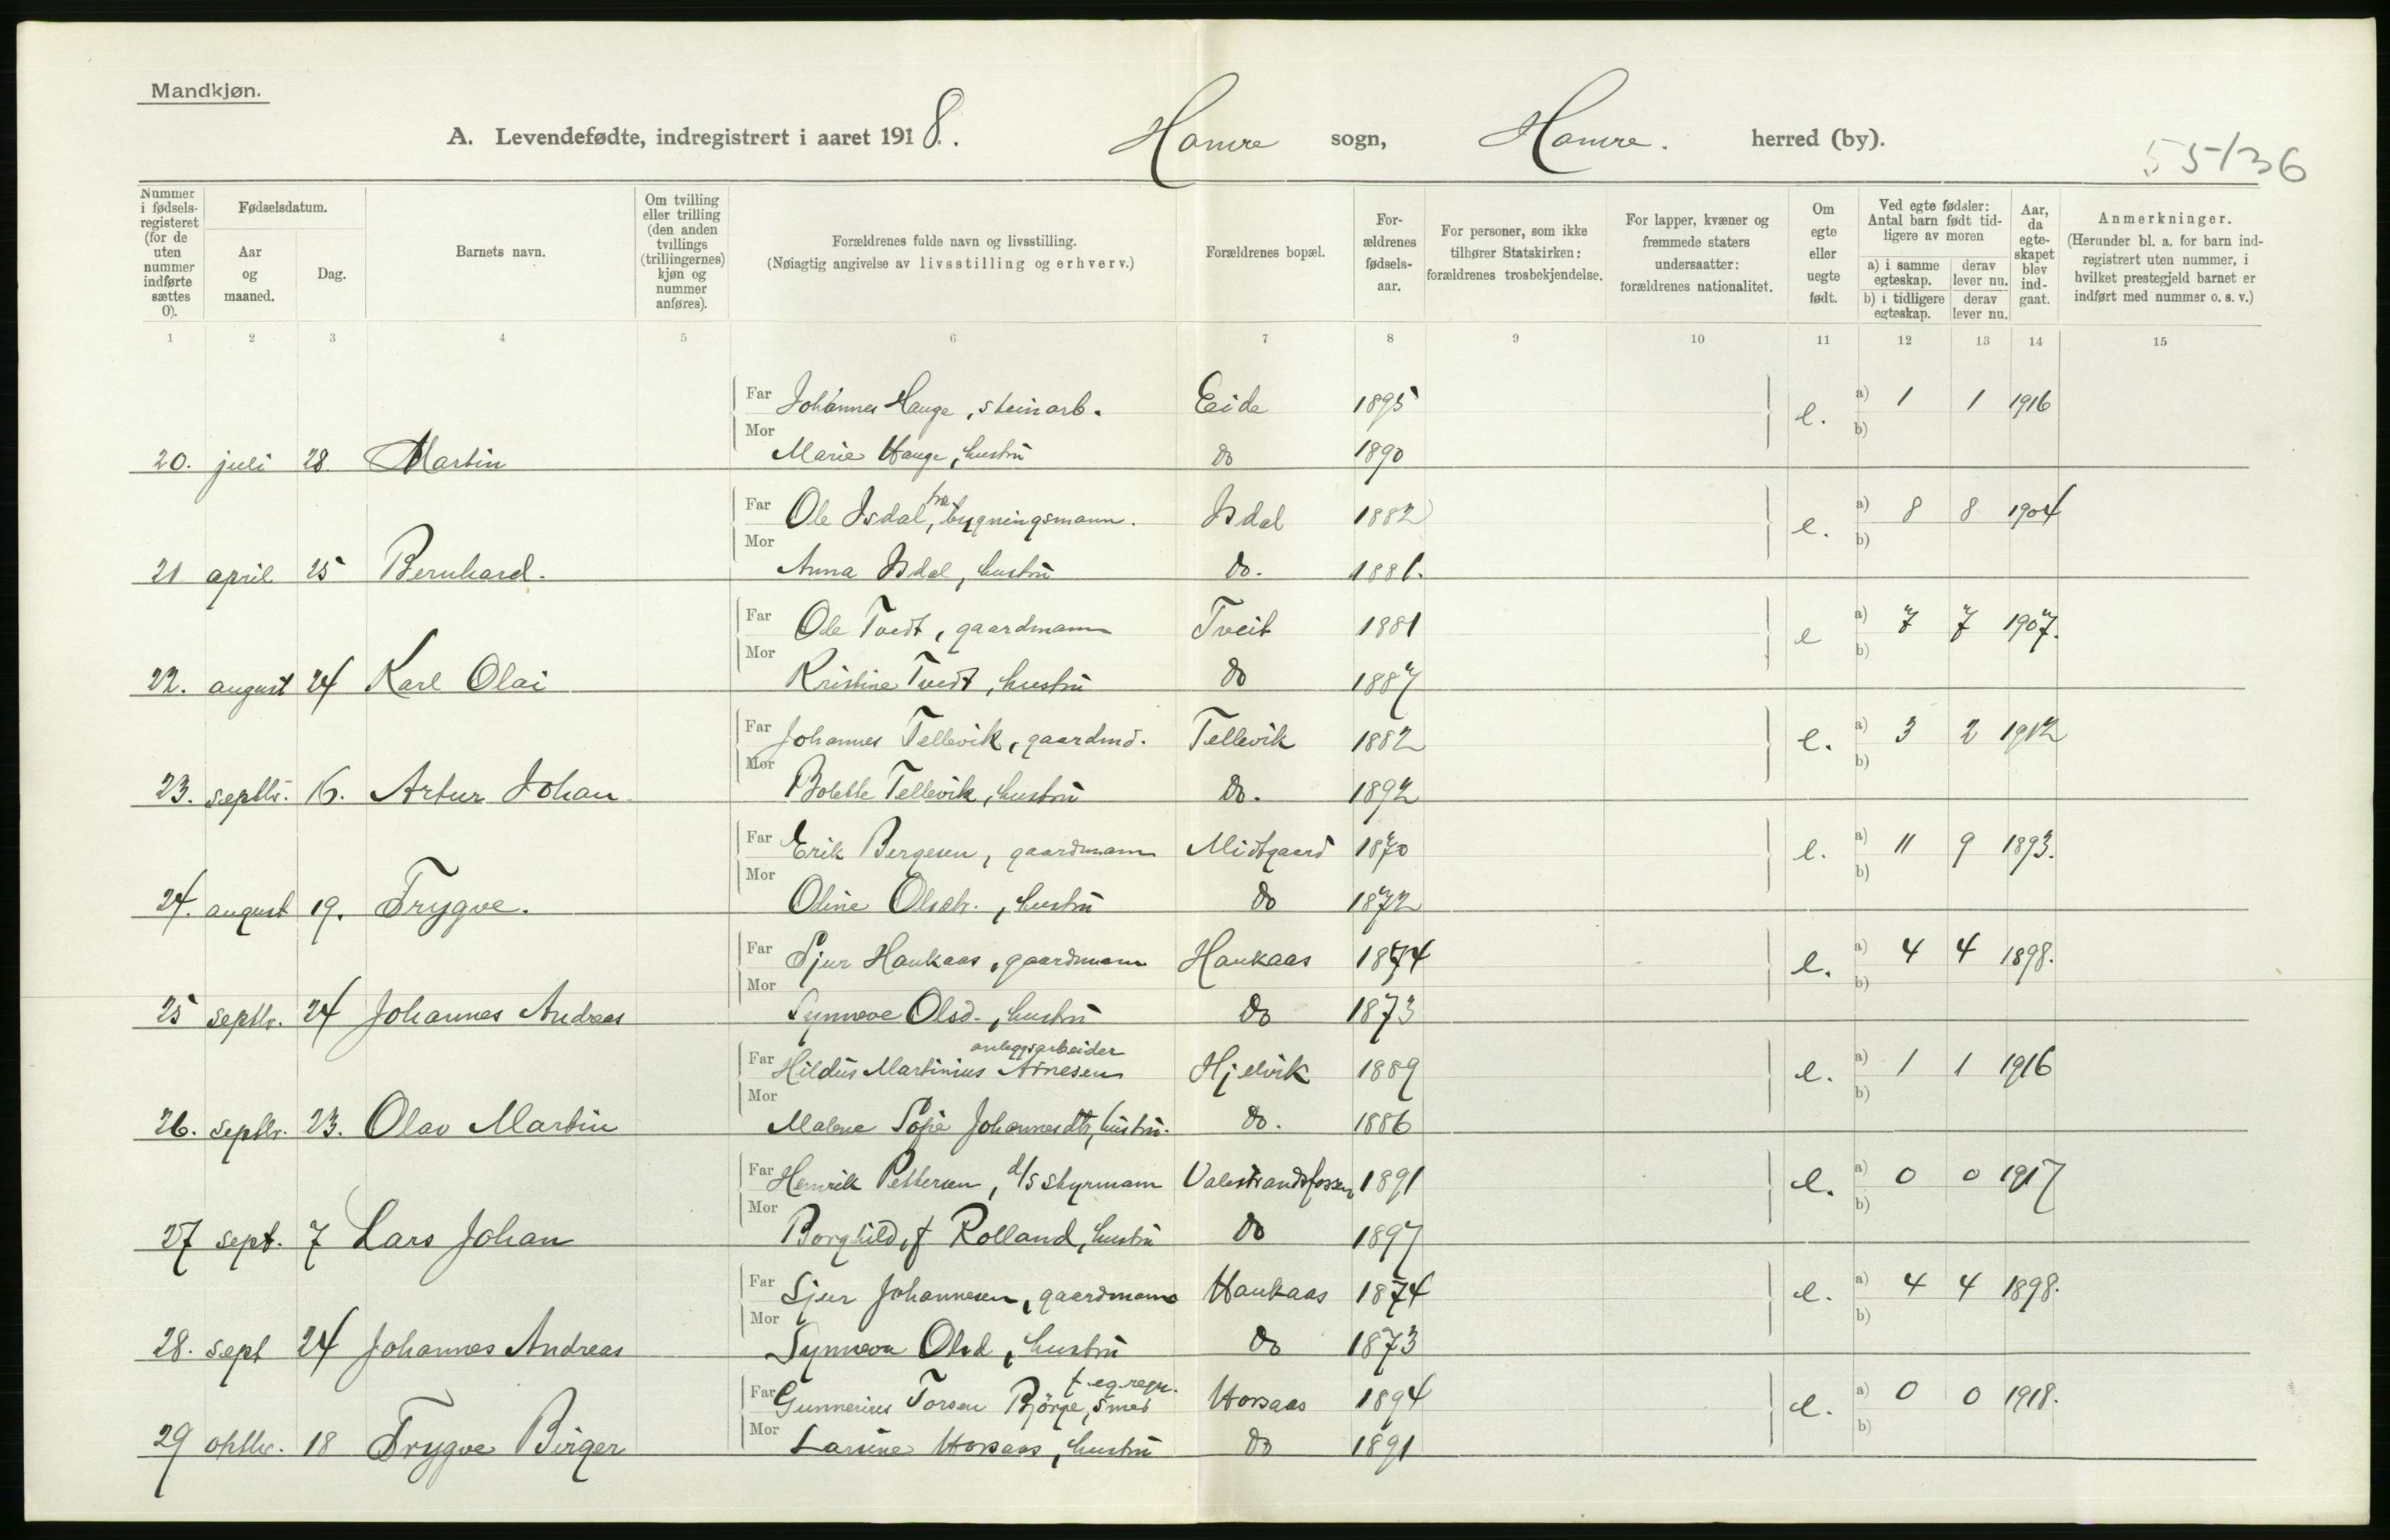 Mandkjøn.
A. Levendefødte, indregistrert i aaret 1918. Hamre sogn, Hamre. herred (by).
55/36
Nummer i fødselsregisteret (for de uten nummer indførte sættes 0).
Fødselsdatum.
Aar og maaned.
Dag.
Barnets navn.
Om tvilling eller trilling (den anden tvillings (trillingernes) kjøn og nummer anføres).
Forældrenes fulde navn og livsstilling.
(Nøiagtig angivelse av livsstilling og erhverv.)
Forældrenes bopæl.
Forældrenes fødselsaar.
For personer, som ikke tilhører Statskirken: forældrenes trosbekjendelse.
For lapper, kvæner og fremmede staters undersaatter: forældrenes nationalitet.
Om egte eller uegte født.
Ved egte fødsler: Antal barn født tidligere av moren
a) i samme egteskap. derav lever nu.
b) i tidligere egteskap. derav lever nu.
Aar, da egteskapet blev indgaat.
Anmerkninger.
(Herunder bl. a. for barn indregistrert uten nummer, i hvilket prestegjeld barnet er indført med nummer o. s. v.)
1 2 3 4 5 6 7 8 9 10 11 12 13 14 15
Far Johannes Hauge, steinarb. Eide 1895 e. a) 1 1 1916
20. juli 28. Martin Mor Marie Hauge, hustru do 1890 b)
Far Ole Isdal, fra bygningsmann. Isdal 1882 e. a) 8 8 1904
21 april 25 Bernhard. Mor Anna Isdal, hustru do. 1881. b)
Far Ole Tvedt, gaardmann Tveit 1881 e a) 7 7 1907.
22. august 24 Karl Olai Mor Kristine Tvedt, hustru do 1887 b)
Far Johannes Tellevik, gaardmd. Tellevik 1882 e. a) 3 2 1912
23. septbr. 16. Artur Johan Mor Bolette Tellevik, hustru do. 1892 b)
Far Erik Bergesen, gaardmann Midtgaard 1870 e. a) 11 9 1893.
24. august 19. Trygve. Mor Oline Olsdtr., hustru do 1872 b)
Far Sjur Haukaas, gaardmann Haukaas 1874 e. a) 4 4 1898.
25 septbr. 24 Johannes Andreas Mor Synneve Olsd., hustru do 1873 b)
anleggsarbeider
Far Hildus Martinius Arnesen Hjelvik 1889 e. a) 1 1 1916
26. septbr. 23. Olav Martin Mor Malene Sofie Johannesdtr, hustru. do. 1886 b)
Far Henrik Pettersen, d/s styrmann Valestrandsfossen 1891 e. a) 0 0 1917
27 sept. 7 Lars Johan Mor Borghild, f Rolland, hustru do 1897 b)
Far Sjur Johannesen, gaardmann Haukaas 1874 e. a) 4 4 1898.
28. sept 24 Johannes Andreas Mor Synneva Olsd, hustru do 1873 b)
Far Gunnerius Torsen Bjørge, smed Horsaas 1894 e. a) 0 0 1918.
29 oktbr. 18 Trygve Birger Mor Larsine Horsaas, hustru do 1891 b)